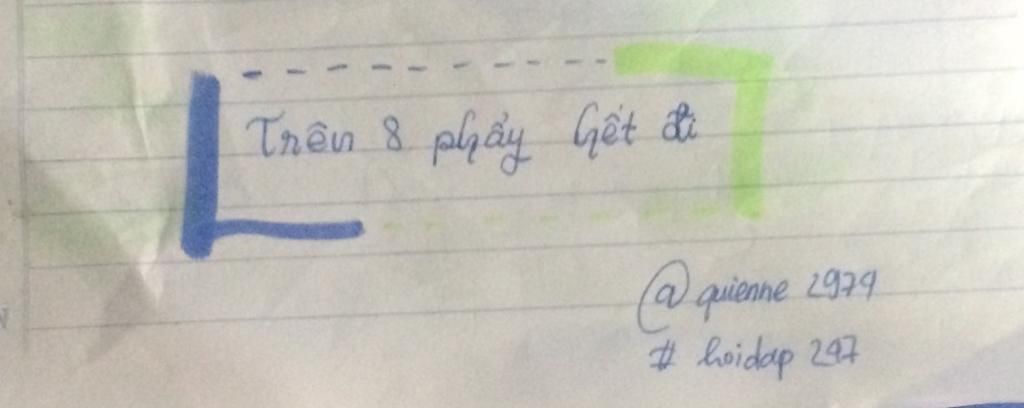 Trên 8 phẩy hết đi
@ quienne 2979
# hoidap 247